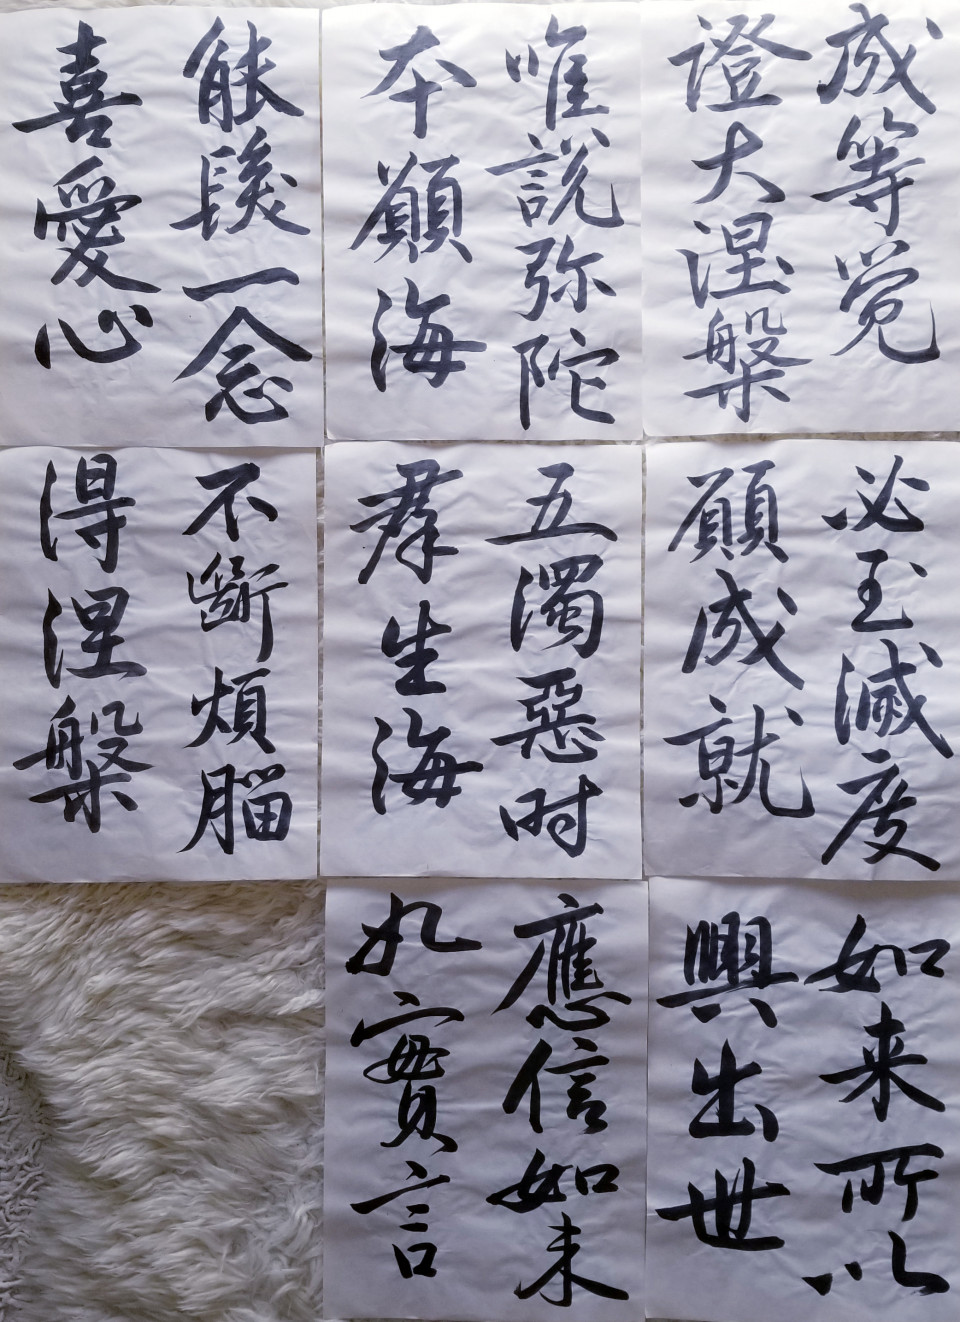 成等覚
證大涅槃
必至滅度
願成就
如来所以
興出世
唯説弥陀
本願海
五濁惡时
羣生海
應信如来
如實言
能發一念
喜愛心
不斷煩腦
得涅槃